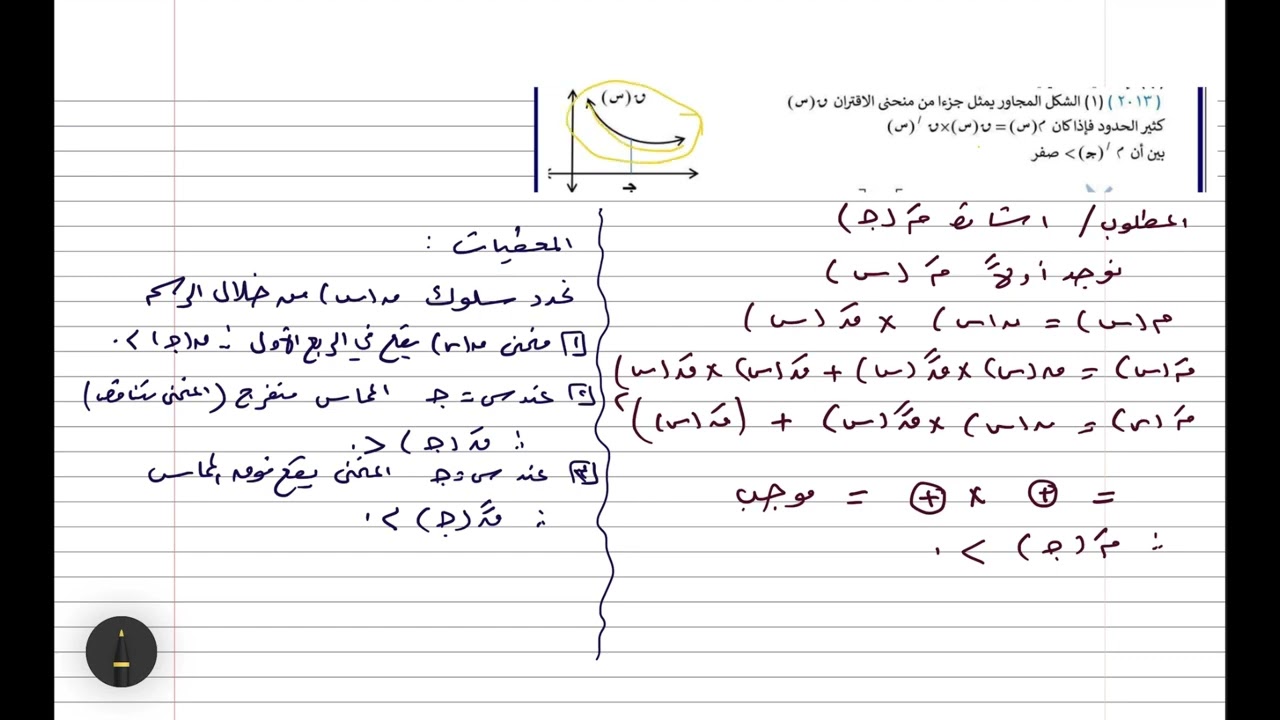 (٢٠١٣) (١) الشكل المجاور يمثل جزءا من منحنى الاقتران ق(س)
كثير الحدود فإذا كان م(س) = ق(س)×ق/(س)
بين أن م/(جـ) > صفر
ق(س)
جـ
المطلوب / اشارة مَ(جـ)
نوجد أولاً مَ(س)
م(س) = ق(س) × قَ(س)
مَ(س) = ق(س) × قًَ(س) + قَ(س) × قَ(س)
مَ(س) = ق(س) × قًَ(س) + (قَ(س))٢
= + × + = موجب
∴ مَ(جـ) > ٠
المعطيات :
نحدد سلوك ق(س) من خلال الرسم
١ منحنى ق(س) يقع في الربع الأول ∴ ق(جـ) > ٠
٢ عند س = جـ المماس منفرج (المنحنى متناقص)
∴ قَ(جـ) < ٠
٣ عند س = جـ المنحنى يقع فوق المماس
∴ قًَ(جـ) > ٠